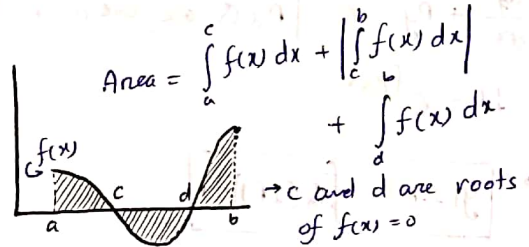 Area = ∫_a^c f(x) dx + |∫_c^b f(x) dx|
+ ∫_d^b f(x) dx.
f(x)
a c d b
→ c and d are roots
of f(x) = 0